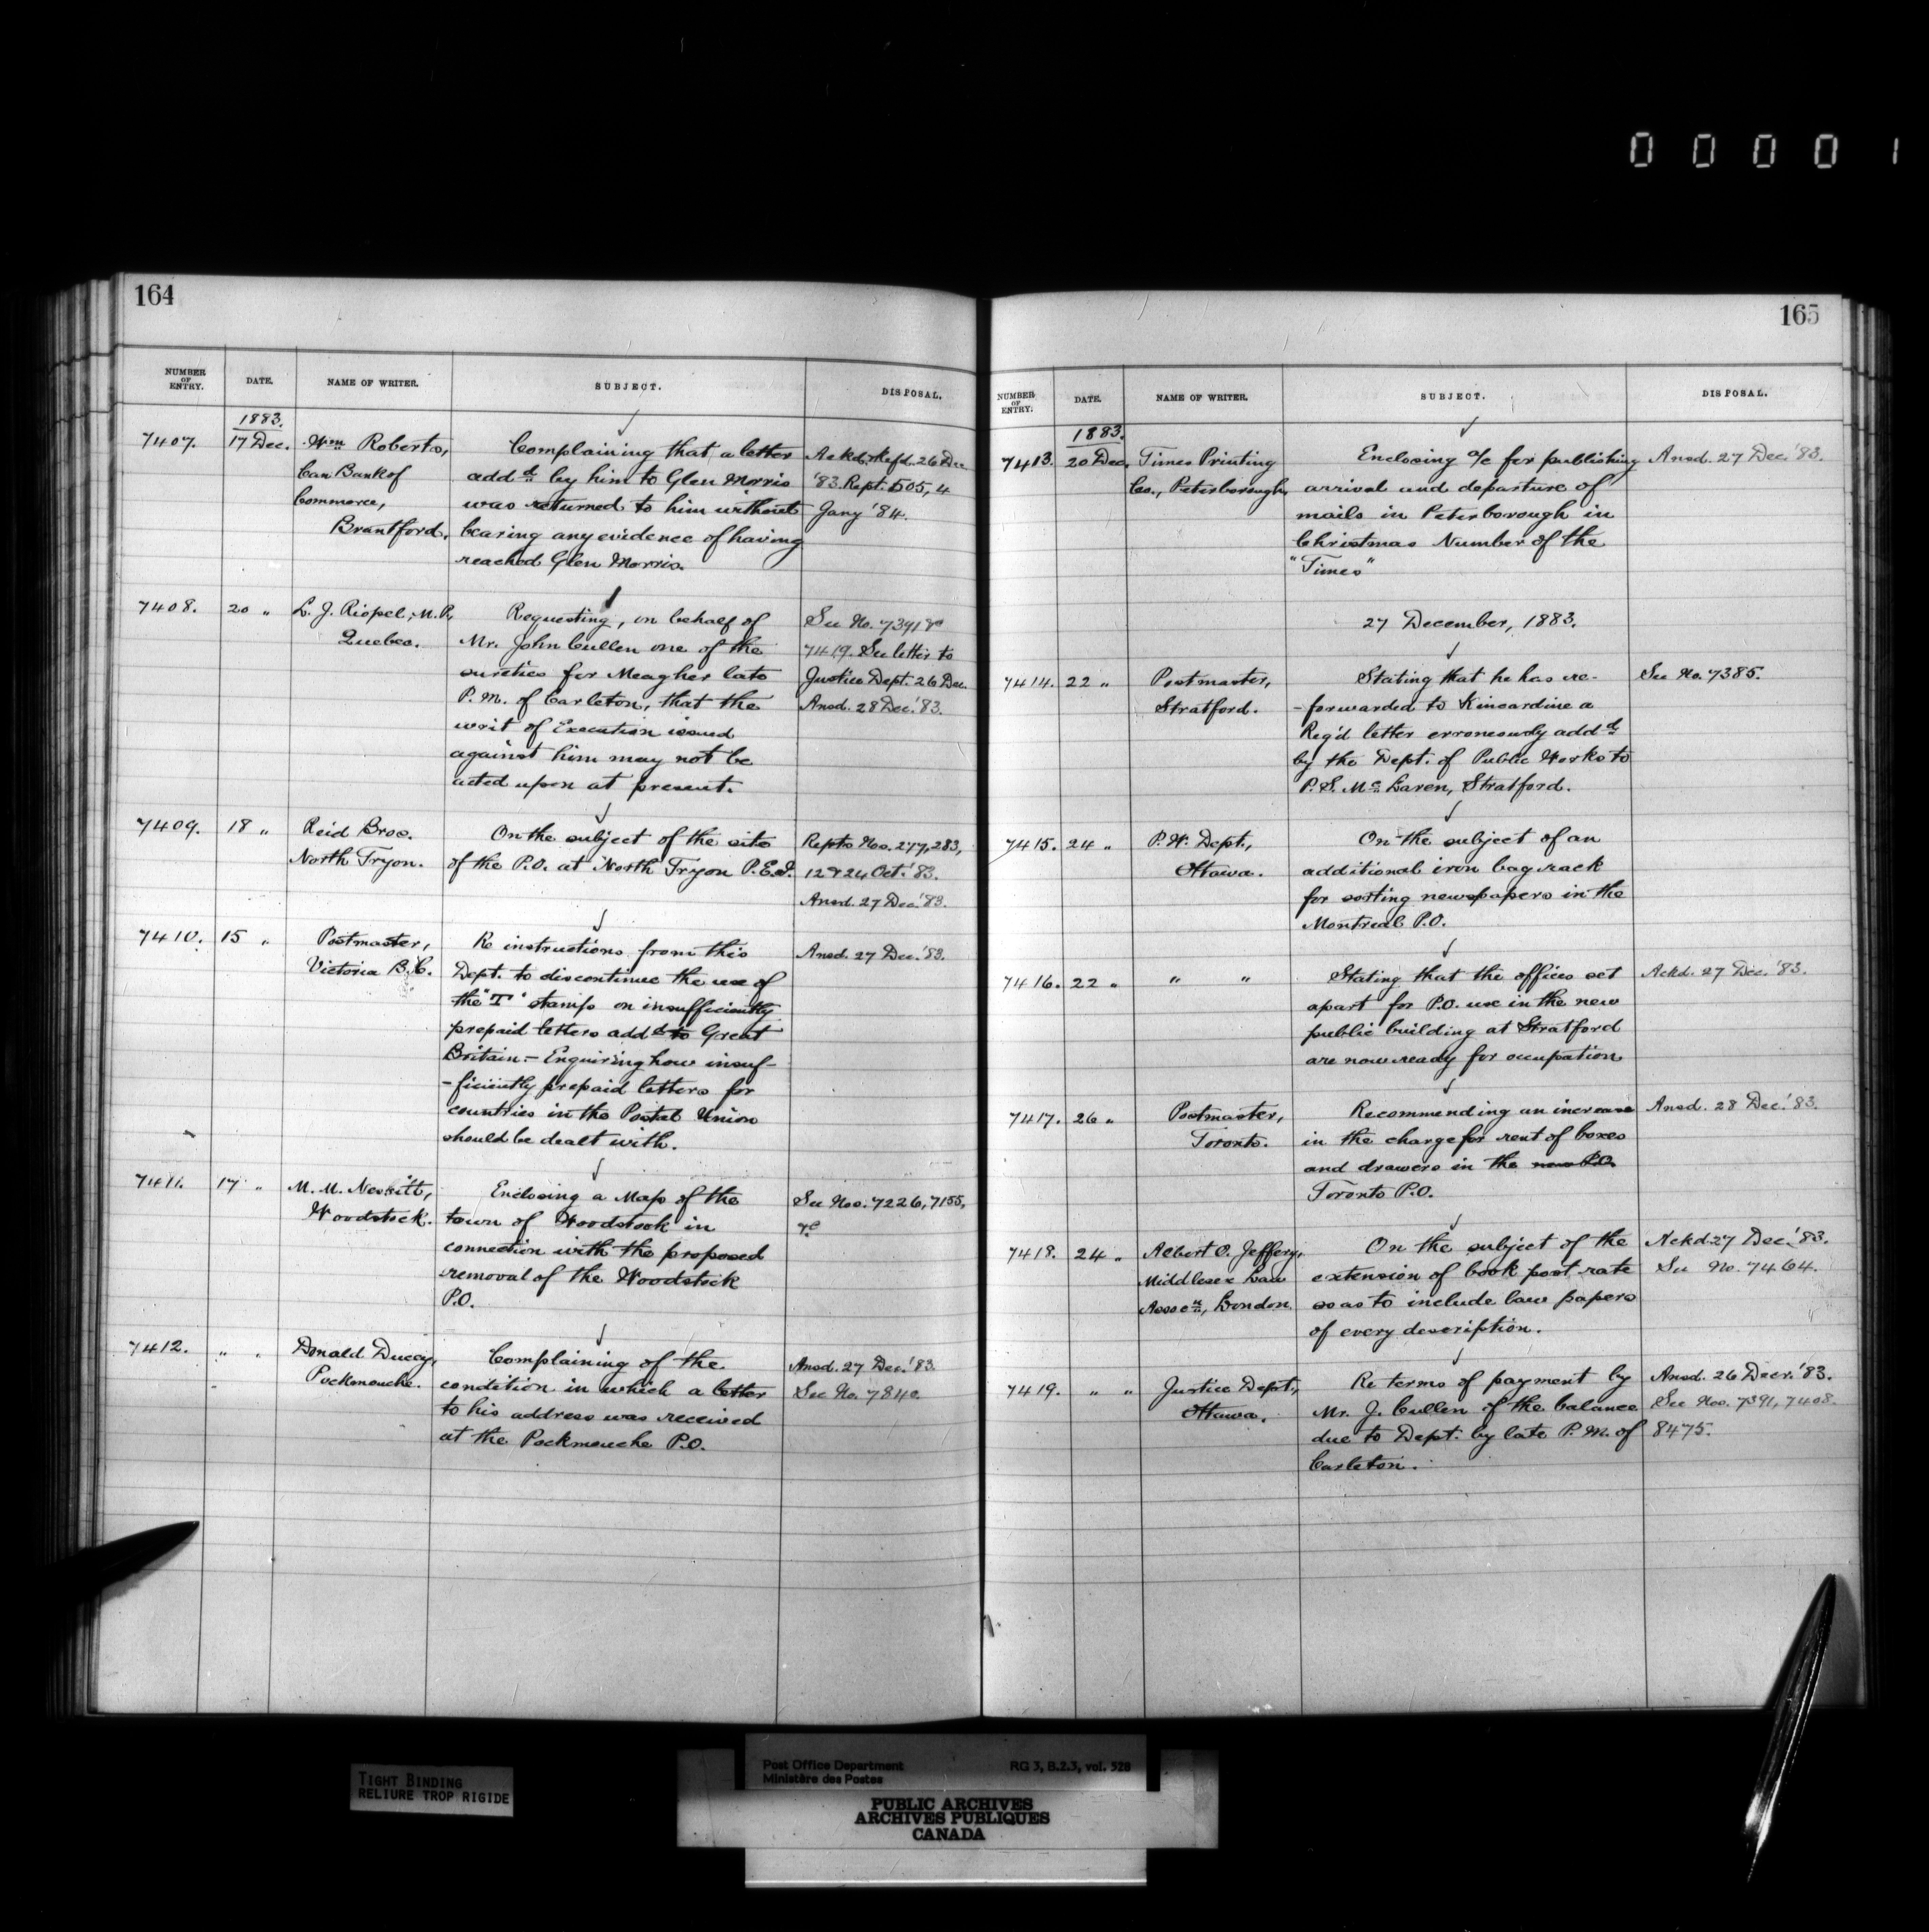 0 0 0 0 1
164
NUMBER OF ENTRY. DATE. NAME OF WRITER. SUBJECT. DISPOSAL.
1883.
7407. 17 Dec. Wm Roberts, Complaining that a letter Ackd. & Refd. 26 Dec.
Can Bank of addd by him to Glen Morris '83. Rept. 505, 4
Commerce, was returned to him without Jany '84.
Brantford, bearing any evidence of having
reached Glen Morris.
7408. 20 " L. J. Riopel, M.P, Requesting, on behalf of See No. 7391 &c
Quebec. Mr. John Cullen one of the 7419. See letter to
sureties for Meagher late Justice Dept. 26 Dec.
P.M. of Carleton, that the Ansd. 28 Dec. '83.
writ of Execution issued
against him may not be
acted upon at present.
7409. 18 " Reid Bros. On the subject of the site Repts Nos. 277, 283,
North Tryon. of the P.O. at North Tryon P.E.I. 12 & 24 Oct. '83.
Ansd. 27 Dec. '83.
7410. 15 " Postmaster, Re instructions from this Ansd. 27 Dec. '83.
Victoria B.C. Dept. to discontinue the use of
the "T" stamp on insufficiently
prepaid letters addd to Great
Britain.- Enquiring how insuf-
-ficiently prepaid letters for
countries in the Postal Union
should be dealt with.
7411. 17 " M. M. Nesbitt, Enclosing a Map of the See Nos. 7226, 7155,
Woodstock. town of Woodstock in &c
connection with the proposed
removal of the Woodstock
P.O.
7412. " " Donald Ducey, Complaining of the Ansd. 27 Dec. '83.
Pockmouche. condition in which a letter See No. 7840
to his address was received
at the Pockmouche P.O.
165
NUMBER OF ENTRY. DATE. NAME OF WRITER. SUBJECT. DISPOSAL.
1883.
7413. 20 Dec. Times Printing Enclosing a/c for publishing Ansd. 27 Dec. '83.
Co., Peterborough, arrival and departure of
mails in Peterborough in
Christmas Number of the
"Times"
27 December, 1883.
7414. 22 " Postmaster, Stating that he has re- See No. 7385.
Stratford. -forwarded to Kincardine a
Reg'd letter erroneously addd
by the Dept. of Public Works to
P.S. Mc Laren, Stratford.
7415. 24 " P.W. Dept., On the subject of an
Ottawa. additional iron bag rack
for sorting newspapers in the
Montreal P.O.
7416. 22 " " " Stating that the offices set Ackd. 27 Dec. '83.
apart for P.O. use in the new
public building at Stratford
are now ready for occupation
7417. 26 " Postmaster, Recommending an increase Ansd. 28 Dec. '83.
Toronto. in the charge for rent of boxes
and drawers in the new P.O.
Toronto P.O.
7418. 24 " Albert O. Jeffery, On the subject of the Ackd. 27 Dec. '83.
Middlesex Law extension of book post rate See No. 7464.
Assocn, London. so as to include law papers
of every description.
7419. " " Justice Dept., Re terms of payment by Ansd. 26 Decr. '83.
Ottawa. Mr. J. Cullen of the balance See Nos. 7391, 7408.
due to Dept. by late P.M. of 8475.
Carleton.
TIGHT BINDING
RELIURE TROP RIGIDE
Post Office Department RG 3, B.2.3, vol. 528
Ministère des Postes
PUBLIC ARCHIVES
ARCHIVES PUBLIQUES
CANADA